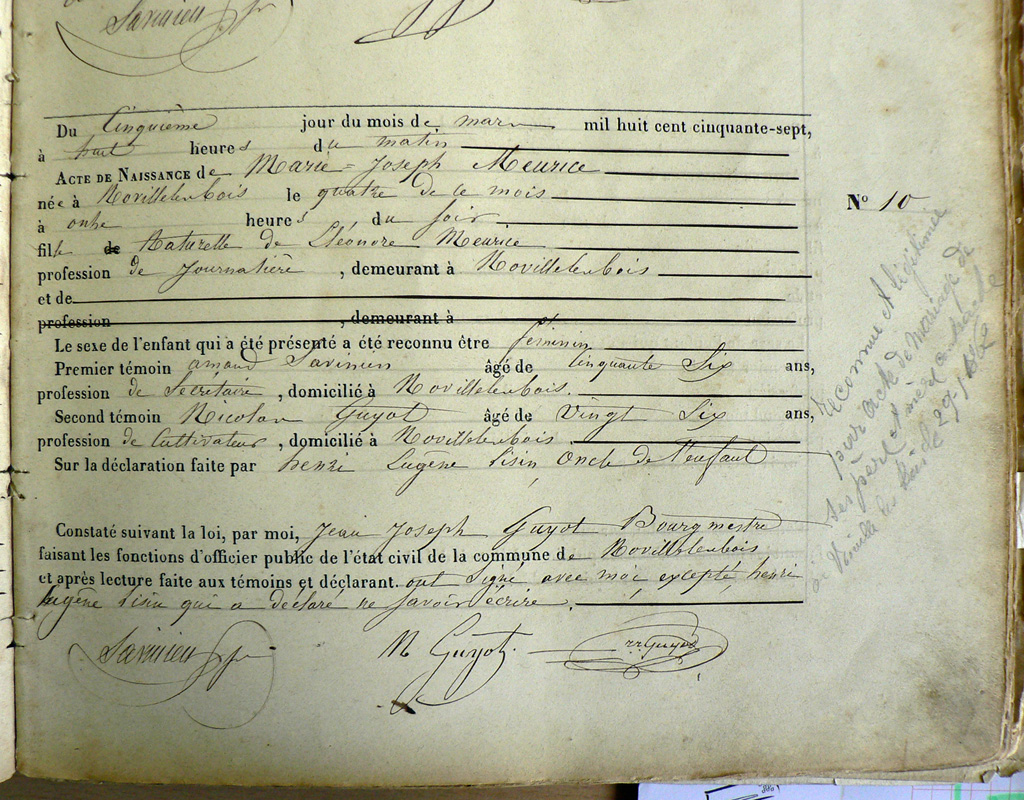 Savinien
Du Cinquième jour du mois de mars mil huit cent cinquante-sept,
à huit heures du matin
ACTE DE NAISSANCE de Marie-Joseph Meurice
née à Novillelenbois le quatre de ce mois
à onhe heures du soir
fille de Naturelle de Eléonore Meurice
profession de journalière, demeurant à Novillelenbois
et de
profession , demeurant à
Le sexe de l'enfant qui a été présenté a été reconnu être féminin
Premier témoin amand Savinien âgé de Cinquante Six ans,
profession de Secrétaire, domicilié à Novillelenbois.
Second témoin Nicolas Guyot âgé de Vingt Six ans,
profession de Cultivateur, domicilié à Novillelenbois.
Sur la déclaration faite par henri Eugène Sisin, Oncle de l'enfant
Constaté suivant la loi, par moi, Jean Joseph Guyot Bourgmestre
faisant les fonctions d'officier public de l'état civil de la commune de Novillelenbois
et après lecture faite aux témoins et déclarant. ont Signé avec moi, excepté, henri
Eugène Sisin qui a déclaré ne savoir écrire.
Savinien N Guyot Guyot
N° 10
Reconnue et légitimée
par acte de mariage de
ses père et mère contracté
à Noville les Bois le 29-1-1862